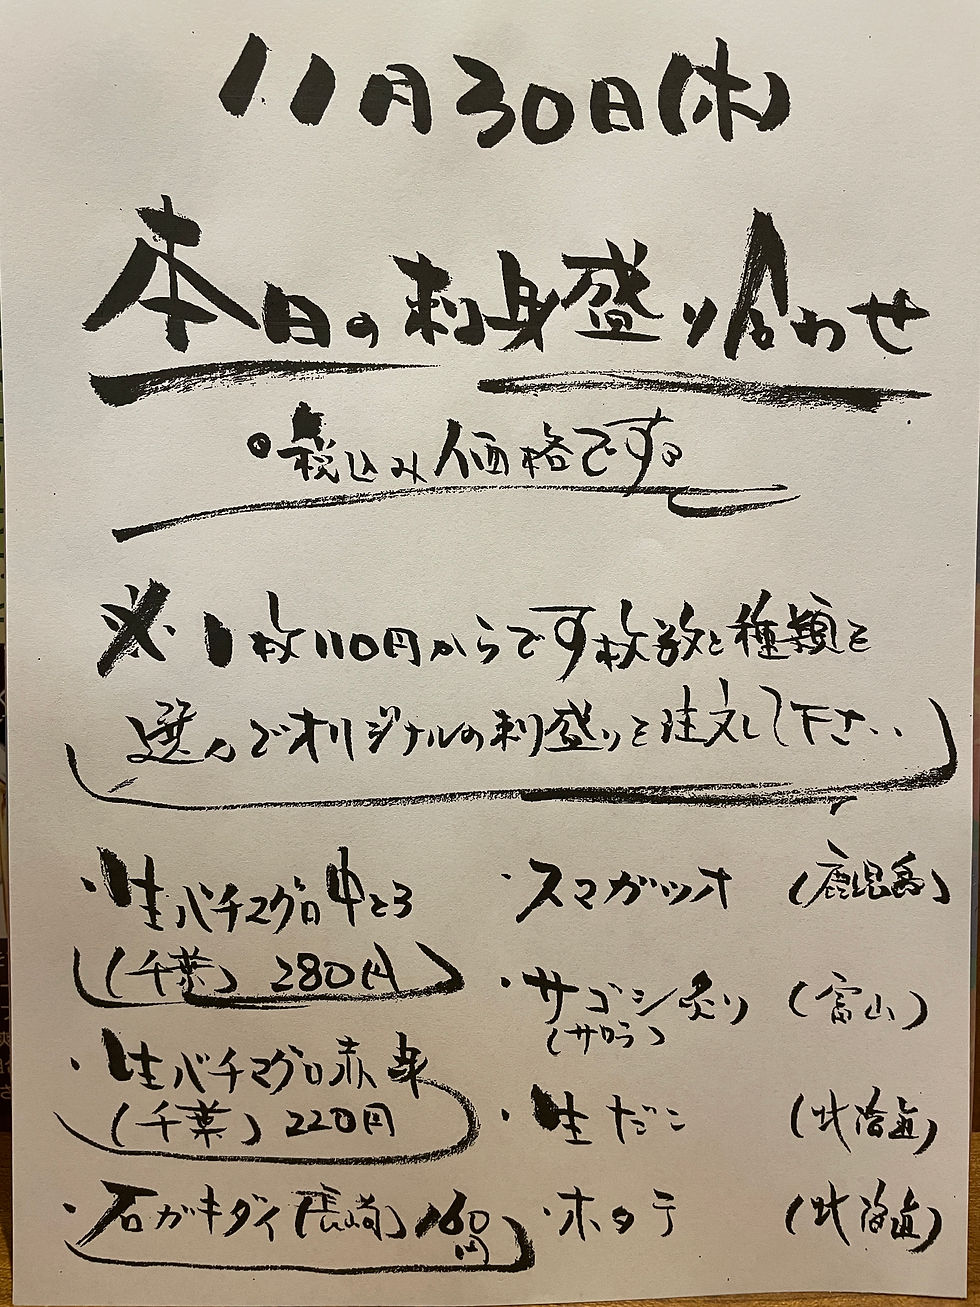 11月30日(木)
本日の刺身盛り合わせ
。税込み価格です。
※1枚110円からです枚数と種類を
選んでオリジナルの刺盛りを注文して下さい
・生バチマグロ中とろ
(千葉) 280円
・生バチマグロ赤身
(千葉) 220円
・石ガキダイ(長崎) 160円
・スマガツオ (鹿児島)
・サゴシ炙り (富山)
(サワラ)
・生だこ (北海道)
・ホタテ (北海道)